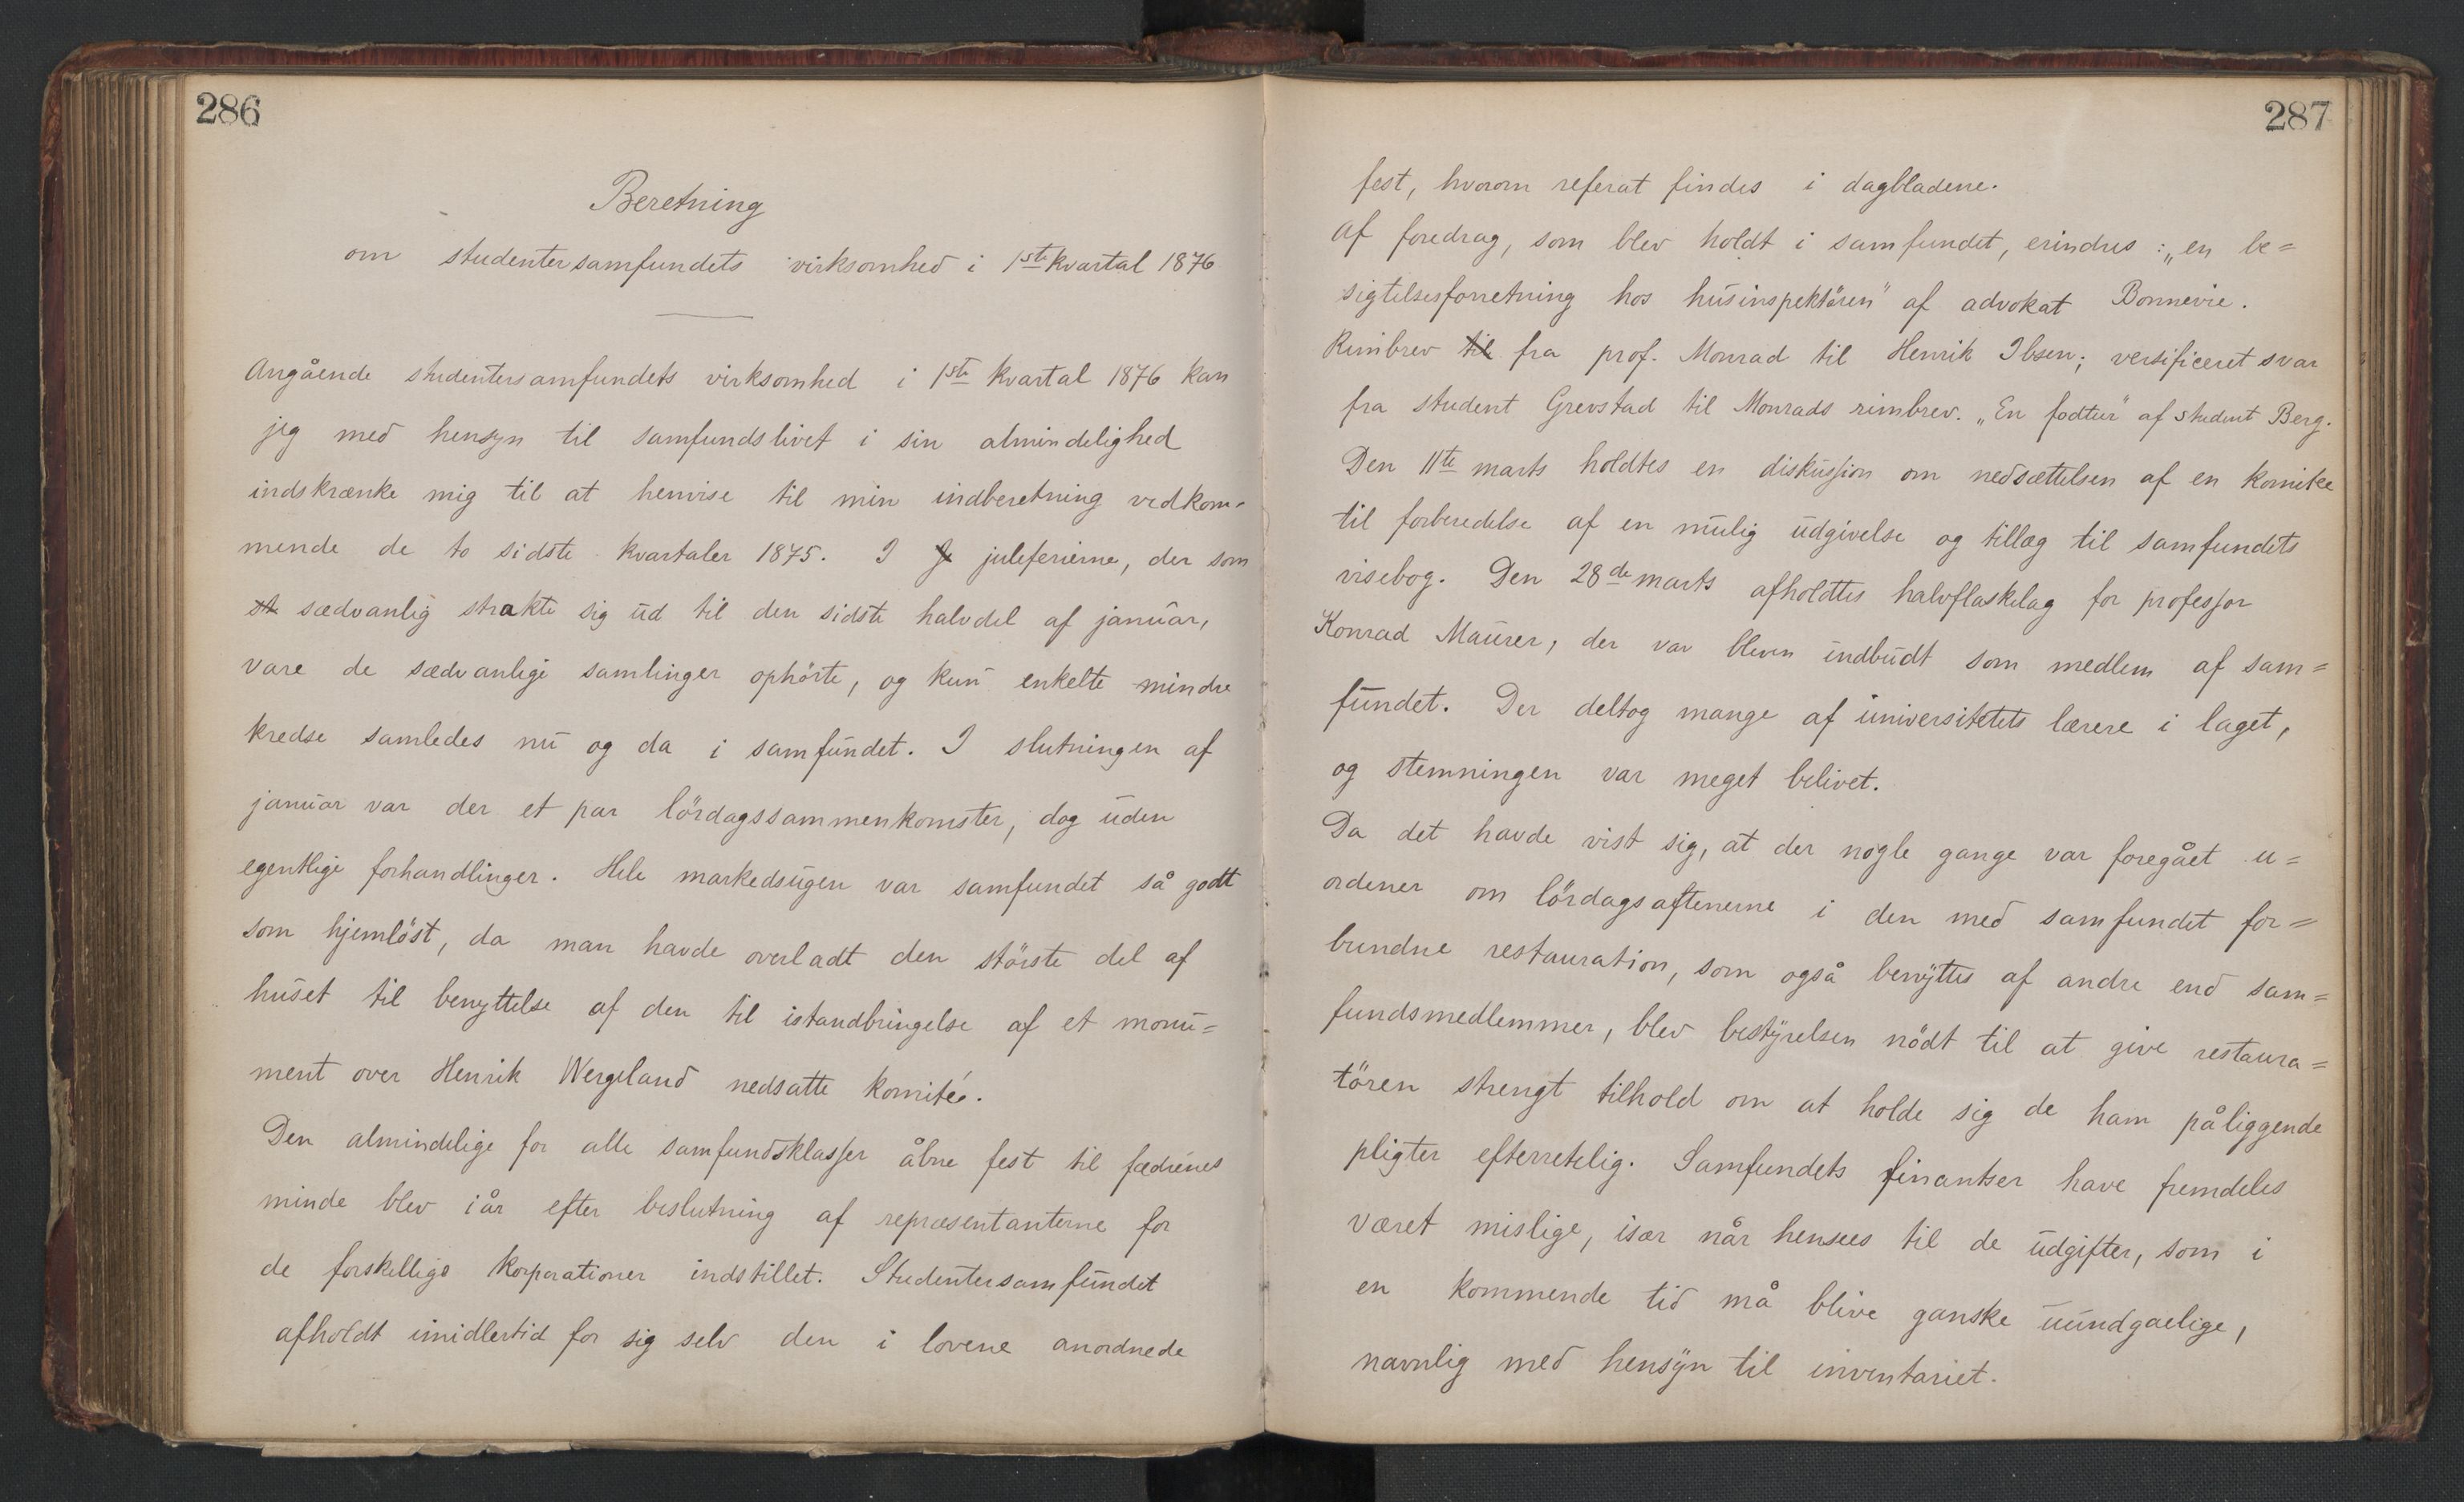 286
Beretning
om studentersamfundets virksomhed i 1ste kvartal 1876
Angående studentersamfundets virksomhed i 1ste kvartal 1876 kan
jeg med hensyn til samfundslivet i sin almindelighed
indskrænke mig til at henvise til min indberetning vedkom-
mende de to sidste kvartaler 1875. I J juleferierne, der som
st sædvanlig strakte sig ud til den sidste halvdel af januar,
vare de sædvanlige samlinger ophörte, og kun enkelte mindre
kredse samledes nu og da i samfundet. I slutningen af
januar var der et par lördagssammenkomster, dog uden
egentlige forhandlinger. Hele markedsugen var samfundet så godt
som hjemlöst, da man havde overladt den störste del af
huset til benyttelse af den til istandbringelse af et monu=
ment over Henrik Wergeland nedsatte komité.
Den almindelige for alle samfundsklasser åbne fest til fædrenes
minde blev iår efter beslutning af repræsentanterne for
de forskellige korporationer indstillet. Studentersamfundet
afholdt imidlertid for sig selv den i lovene anordnede
287
fest, hvorom referat findes i dagbladene.
Af foredrag, som blev holdt i samfundet, erindres: „en be=
sigtelsesforretning hos husinspektören" af advokat Bonnevie.
Rimbrev til fra prof. Monrad til Henrik Ibsen; versificeret svar
fra student Grevstad til Monrads rimbrev. „En fodtur" af student Berg.
Den 11te marts holdtes en diskussion om nedsættelsen af en komite
til forberedelse af en mulig udgivelse og tillæg til samfundets
visebog. Den 28de marts afholdtes halvflaskelag for professor
Konrad Maurer, der var bleven indbudt som medlem af sam=
fundet. Der deltog mange af universitetets lærere i laget,
og stemningen var meget belivet.
Da det havde vist sig, at der nogle gange var foregået u=
ordener om lördagsaftenerne i den med samfundet for=
bundne restauration, som også benyttes af andre end sam=
fundsmedlemmer, blev bestyrelsen nödt til at give restaura=
tören strengt tilhold om at holde sig de ham påliggende
pligter efterretelig. Samfundets finantser have fremdeles
været mislige, især når hensees til de udgifter, som i
en kommende tid må blive ganske uundgaelige,
navnlig med hensyn til inventariet.